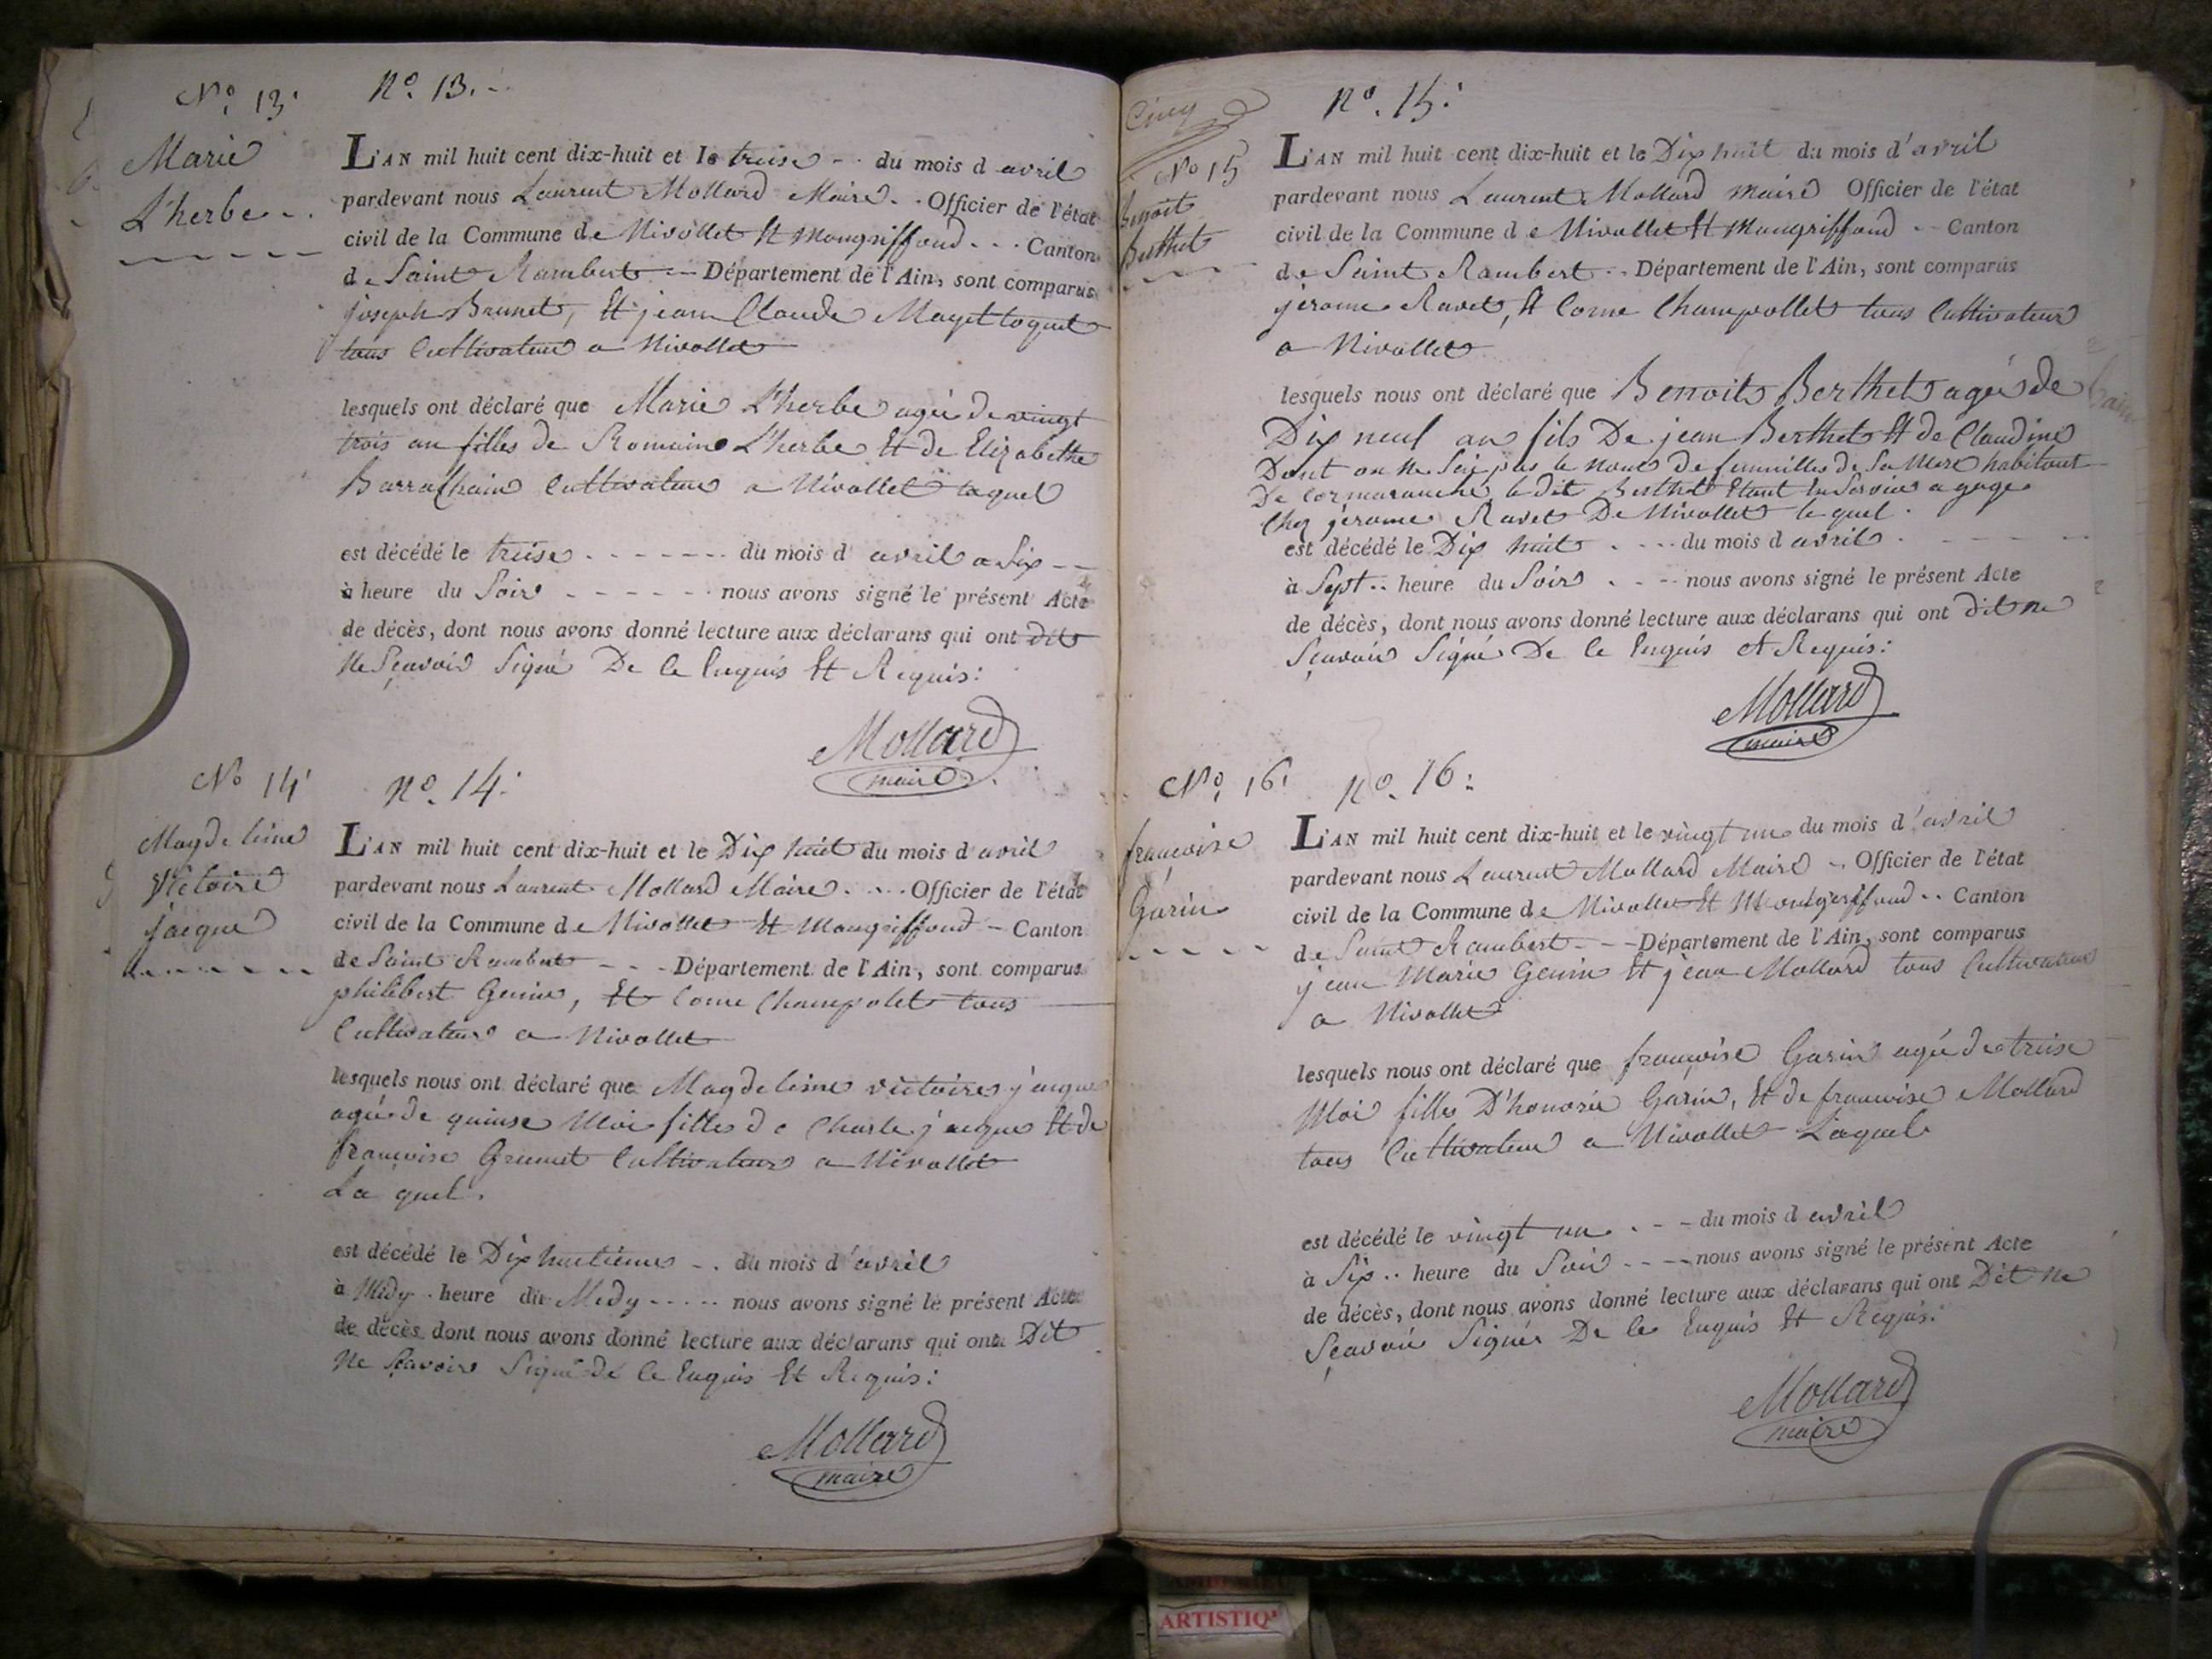 No. 13.
No. 13.
Marie
L'herbe
L'AN mil huit cent dix-huit et le treise du mois d avril
pardevant nous Laurent Mollard Maire Officier de l'état
civil de la Commune de Nivollet Et Mongriffond Canton
de Saint Rambert Département de l'Ain, sont comparus
joseph Brunet, Et jean Claude Mayet toquet
tous Cultivateur a Nivollet
lesquels ont déclaré que Marie L'herbe agée de vingt
trois an filles de Romain L'herbe Et de Elizabethe
Barralhain Cultivateur a Nivollet laquel
est décédé le treise du mois d' avril a Six
à heure du Soir nous avons signé le présent Acte
de décès, dont nous avons donné lecture aux déclarans qui ont dit
Ne Sçavoir Signé De Ce Enquis Et Requis:
Mollard
maire
No 14
No. 14:
Magdeleine
Victoire
jacque
L'AN mil huit cent dix-huit et le Dix huit du mois d avril
pardevant nous Laurent Mollard Maire Officier de l'état
civil de la Commune de Nivollet Et Mongriffond Canton
de Saint Rambert Département de l'Ain, sont comparus
philibert Genin, Et Come Champolet tous
Cultivateur a Nivollet
lesquels nous ont déclaré que Magdeleine victoire jacque
agée de quinse Moi filles de Charle jacque Et de
françoise Grumet Cultivateur a Nivollet
La quel.
est décédé le Dix huitieme du mois d'avril
à Midy heure du Midy nous avons signé le présent Acte
de décès, dont nous avons donné lecture aux déclarans qui ont Dit
Ne Sçavoir Signé de Ce Enquis Et Requis:
Mollard
maire
Cinq
No. 15:
No 15
Benoit
Berthet
L'AN mil huit cent dix-huit et le Dix huit du mois d'avril
pardevant nous Laurent Mollard maire Officier de l'état
civil de la Commune d e Nivollet Et Mongriffond Canton
de Saint Rambert Département de l'Ain, sont comparus
jerome Ravet, Et Come Champollet tous Cultivateur
a Nivollet
lesquels nous ont déclaré que Benoit Berthet agés de
Dix neuf an fils De jean Berthet Et de Claudine
Dont on ne Sai pas le nom de famille de Sa Mere habitant
De Cormaranche, le dit Berthet Etant En Service a gage
Chez jerome Ravet De Nivollet le quel.
est décédé le Dix huit du mois d avril
à Sept heure du Soir nous avons signé le présent Acte
de décès, dont nous avons donné lecture aux déclarans qui ont dit ne
Sçavoir Signé De Ce Enquis Et Requis:
Mollard
maire
No. 16.
No. 16:
françoise
Garin
L'AN mil huit cent dix-huit et le vingt un du mois d'avril
pardevant nous Laurent Mollard Maire Officier de l'état
civil de la Commune de Nivollet Et Montgriffond Canton
de Saint Rambert Département de l'Ain, sont comparus
jean Marie Genin Et jean Mollard tous Cultivateur
a Nivollet
lesquels nous ont déclaré que françoise Garin agée de treise
Moi filles D'honorée Garin, Et de françoise Mollard
tous Cultivateur a Nivollet Laquel
est décédé le vingt un du mois d avril
à Six heure du Soir nous avons signé le présent Acte
de décès, dont nous avons donné lecture aux déclarans qui ont Dit Ne
Sçavoir Signér De Ce Enquis Et Requis:
Mollard
maire
ARTISTIQ